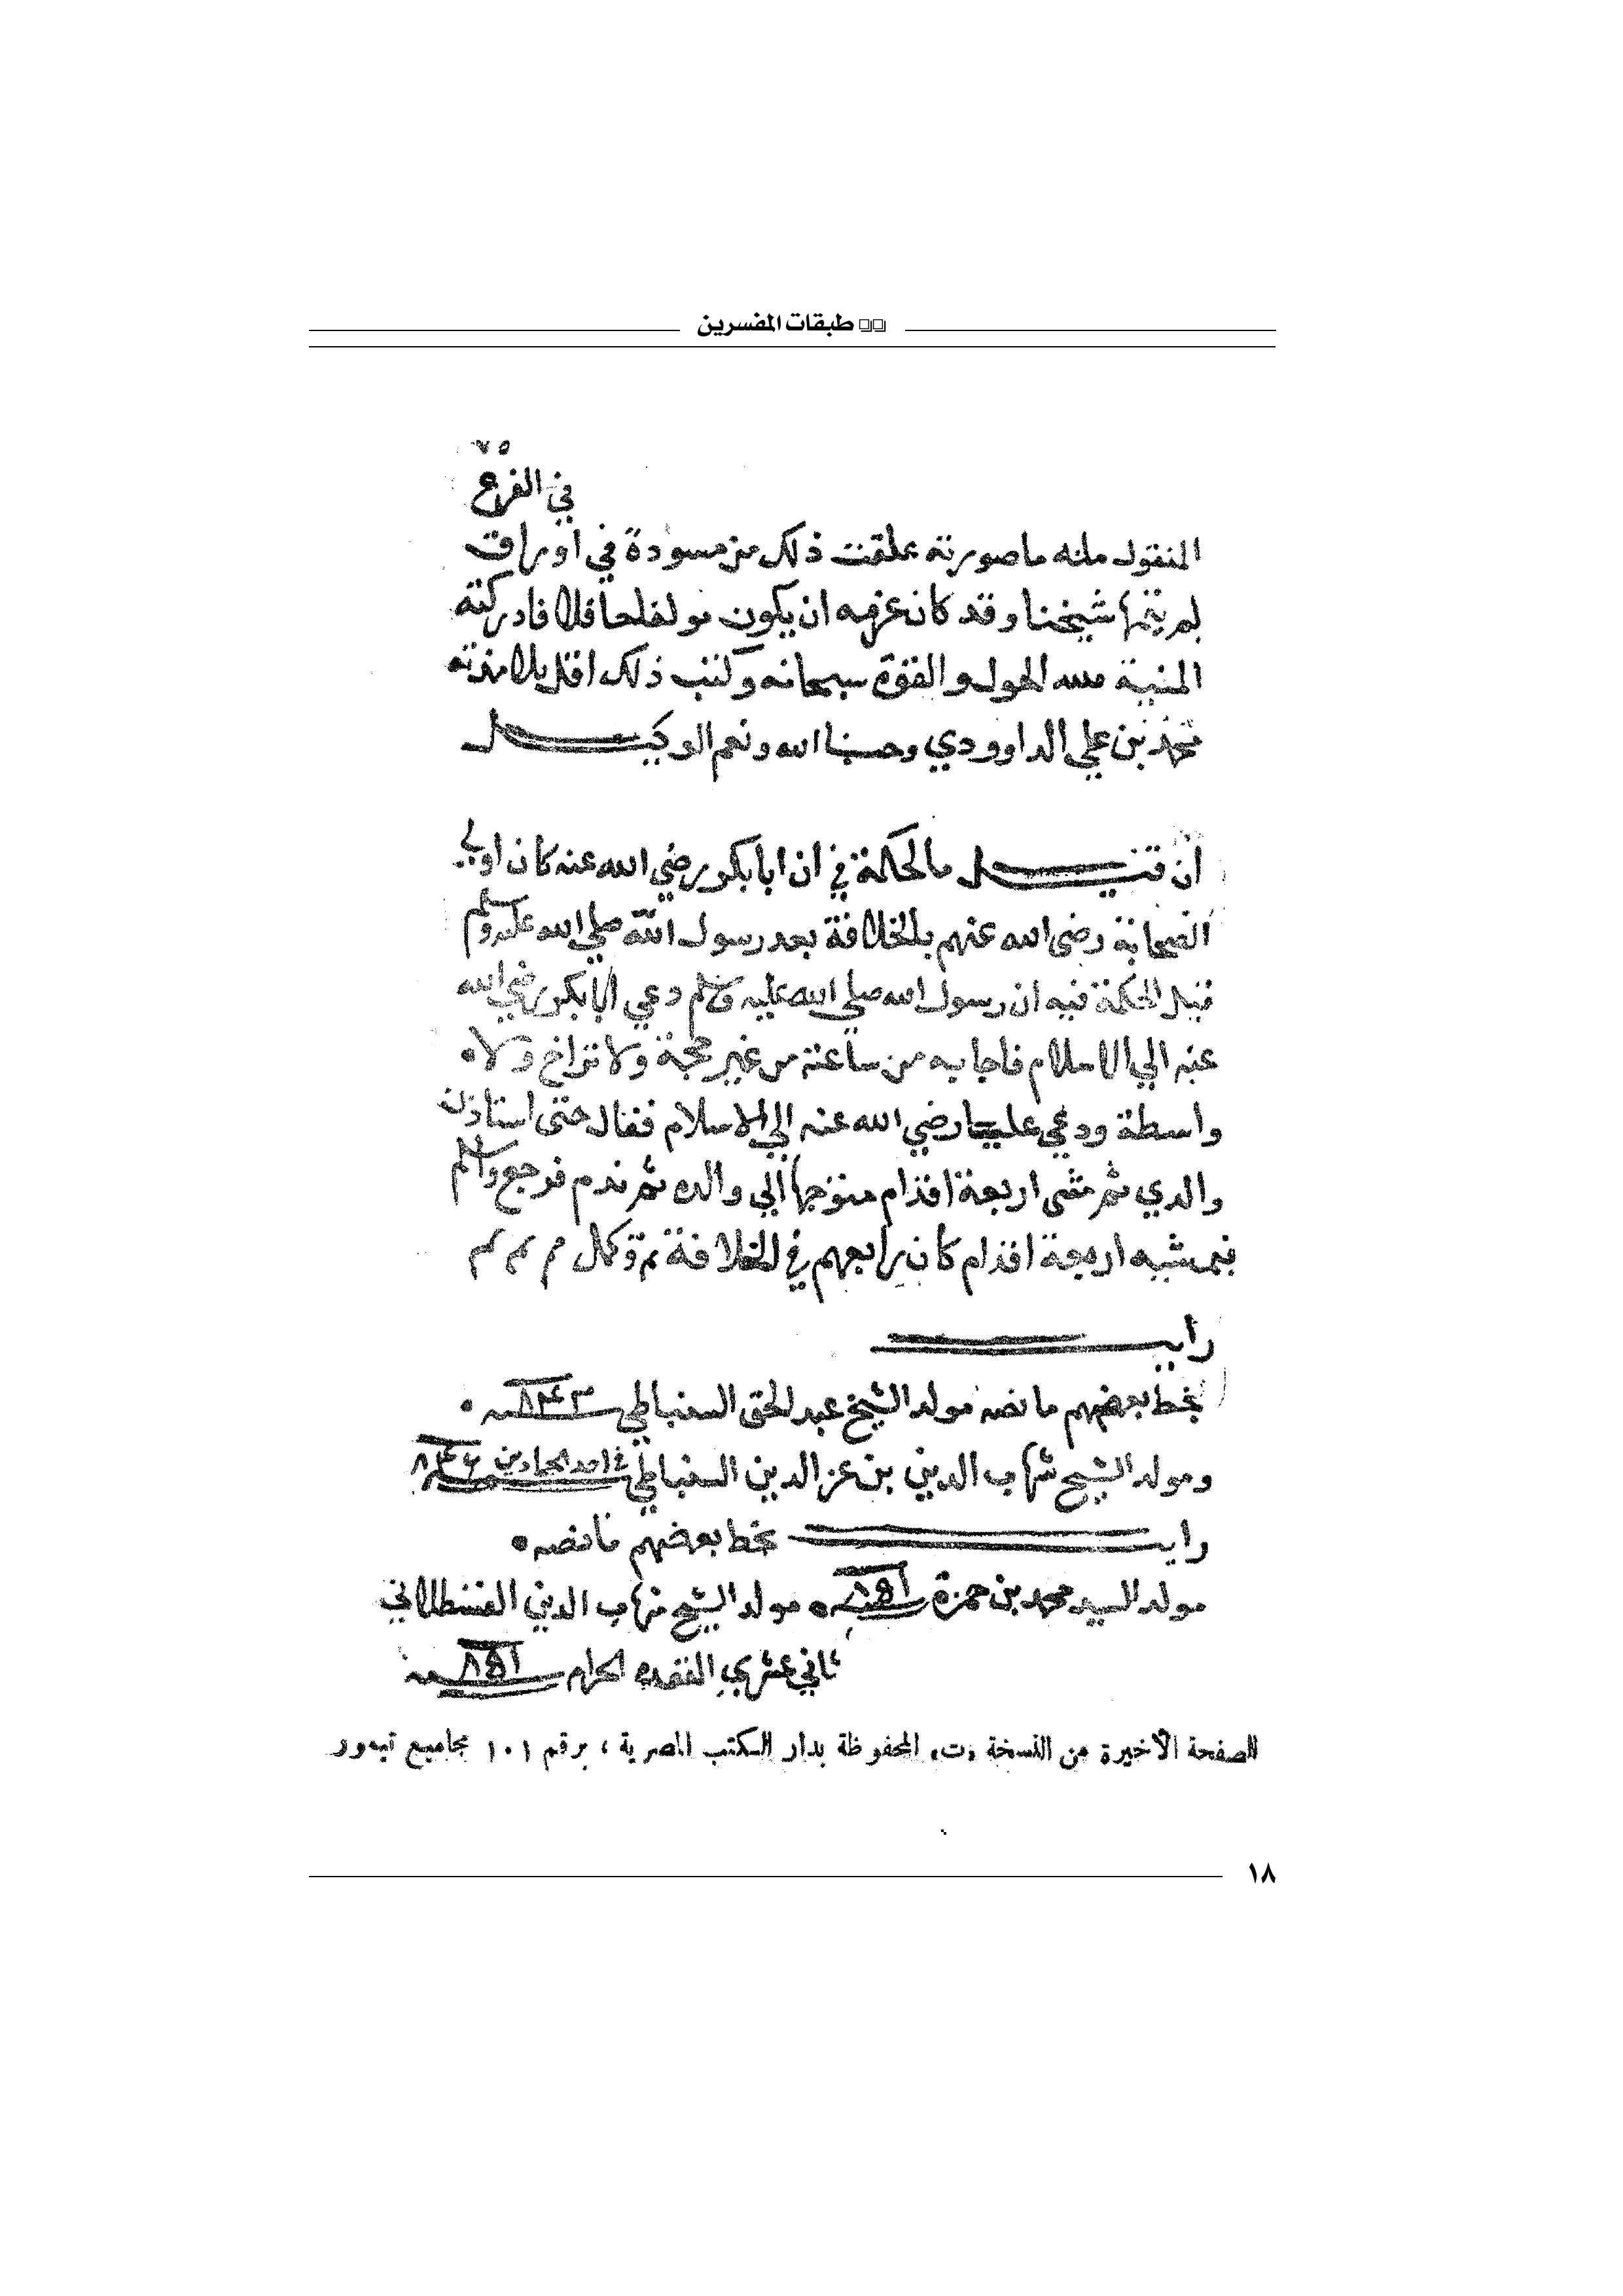 طبقات المفسرين
٧٥
في الفرع
المنقول منه ما صورته علقت ذلك من مسودة في اوراق
لم يتمها شيخنا وقد كان عزمه ان يكون مولفا حافلا فادركته
المنية فلله الحول والقوة سبحانه وكتب ذلك اقل تلامذته
محمد بن علي الداوودي وحسبنا الله ونعم الوكيل
ان قيل ما الحكمة في ان ابا بكر رضي الله عنه كان اولي
الصحابة رضى الله عنهم بالخلافة بعد رسول الله صلي الله عليه وسلم
قيل الحكمة فيه ان رسول الله صلي الله عليه وسلم دعي ابا بكر رضي الله
عنه الي الاسلام فاجابه من ساعته من غير حجة ولا تراخ ولا
واسطة ودعي عليا رضي الله عنه الي الاسلام فقال حتى استاذن
والدي ثم مشى اربعة اقدام متوجها الي والده ثم ندم فرجع واسلم
فبمشيه اربعة اقدام كان رابعهم في الخلافة تم وكمل
رايت
بخط بعضهم ما نصه مولد الشيخ عبد الحق السنباطي سنة ٨٤٢
ومولد الشيخ شهاب الدين بن عز الدين السنباطي في احد الجمادين سنة
رايت بخط بعضهم ما نصه
مولد السيد محمد بن حمزة سنة ٨٥١ مولد الشيخ شهاب الدين القسطلاني
ثاني عشري القعدة الحرام سنة ٨٥١
الصفحة الأخيرة من النسخة «ت» المحفوظة بدار الكتب المصرية ، برقم ١٠١ مجاميع تيمور
١٨